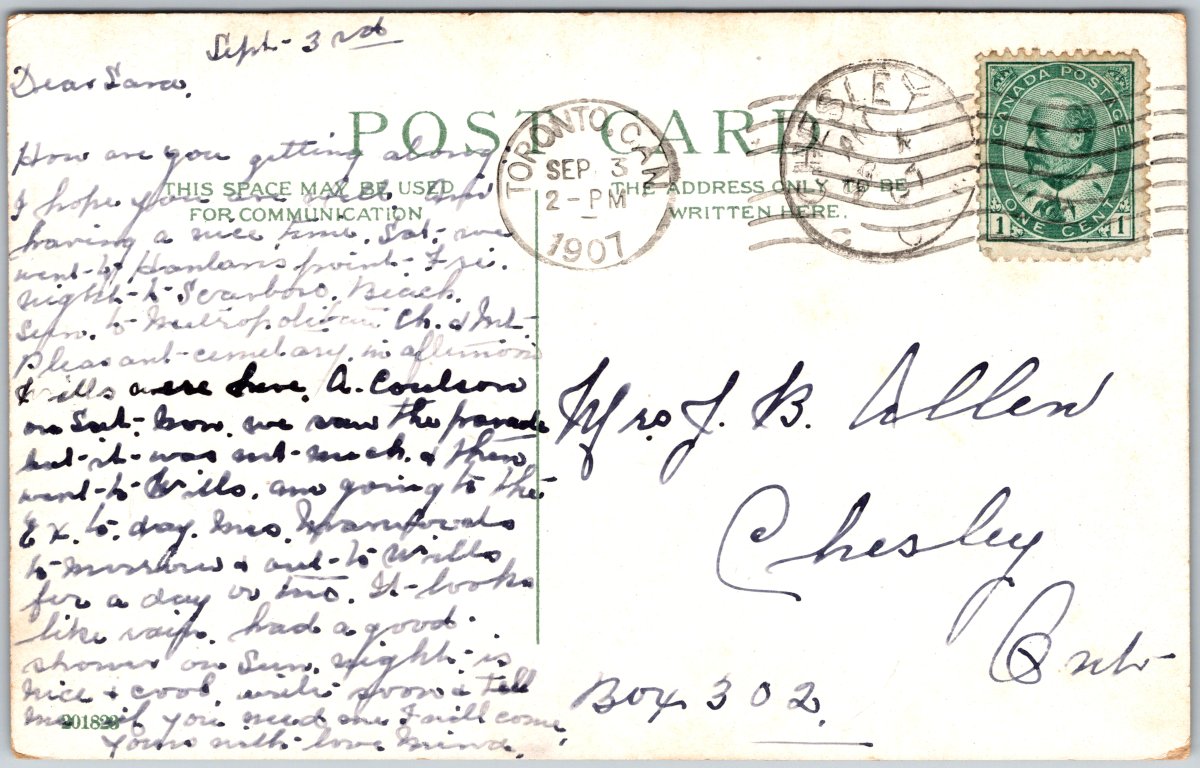 Sept- 3rd
Dear Sara,
POST CARD
THIS SPACE MAY BE USED
FOR COMMUNICATION
THE ADDRESS ONLY TO BE
WRITTEN HERE.
TORONTO, CAN
SEP. 3
2 - PM
1907
CHESLEY
CANADA POSTAGE
1 ONE CENT 1
How are you getting along
I hope you are well and
having a nice time. Sat- we
went- to Hanlans point- Fri.
night- to Scarboro. Beach.
Sun. to Metropolitan Ch. & Mt-
Pleasant- cemetary, in afternoon
& Wills were here. A. Coulson
on Sat- Mon. we saw the parade
but- it- was not- much. & then
went- to Wills. am going to the
Ex. to. day. Mrs.
to-morrow & out- to Wills
for a day or two. It- looks
like rain. had a good
shower on Sun. night- is
nice & cool. write soon & tell
me if you need me I will come.
Yours with- love Mina.
201823
Mrs J. B. Allen
Chesley
Ont-
Box 302.